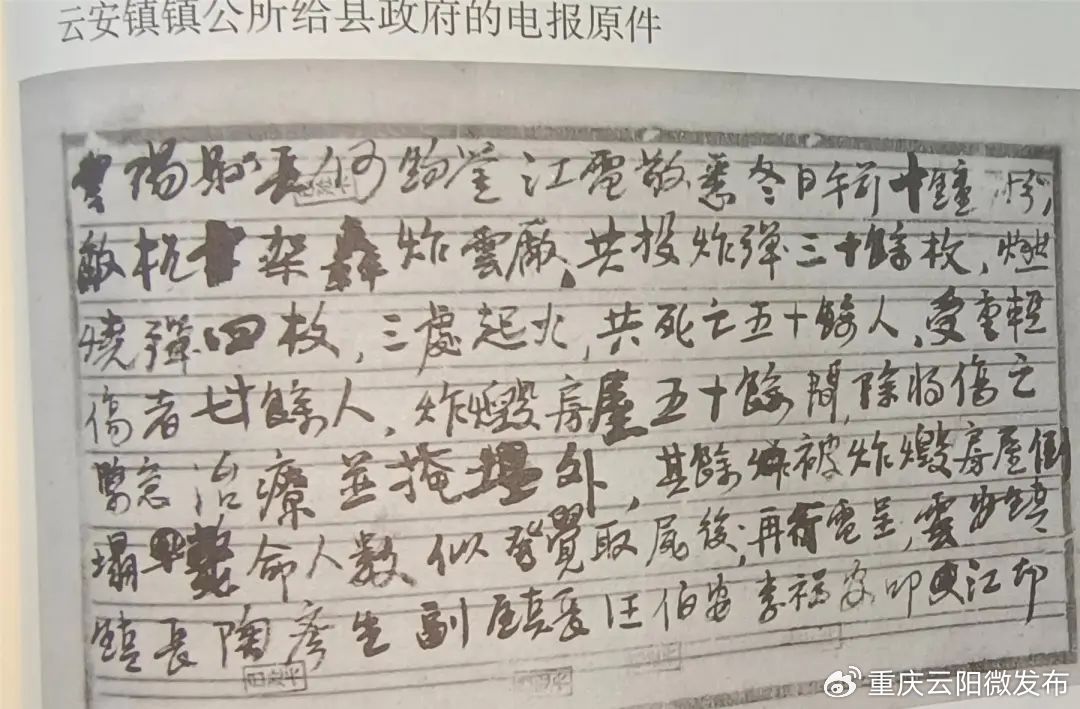 云安镇镇公所给县政府的电报原件
雲陽縣長何鈞鑒江電敬悉冬日午前十鐘時,
敵机架轟炸雲廠,共投炸彈三十餘枚,燃
燒彈四枚,三處起火,共死亡五十餘人,受重輕
傷者七十餘人,炸燬房屋五十餘間,除將傷亡
緊急治療並掩埋外,其餘被炸燬房屋倒
塌斃命人数似發覺取屍後,再行電呈,雲安鎮
鎮長陶彥生副鎮長汪伯安李福安叩江印
重庆云阳微发布